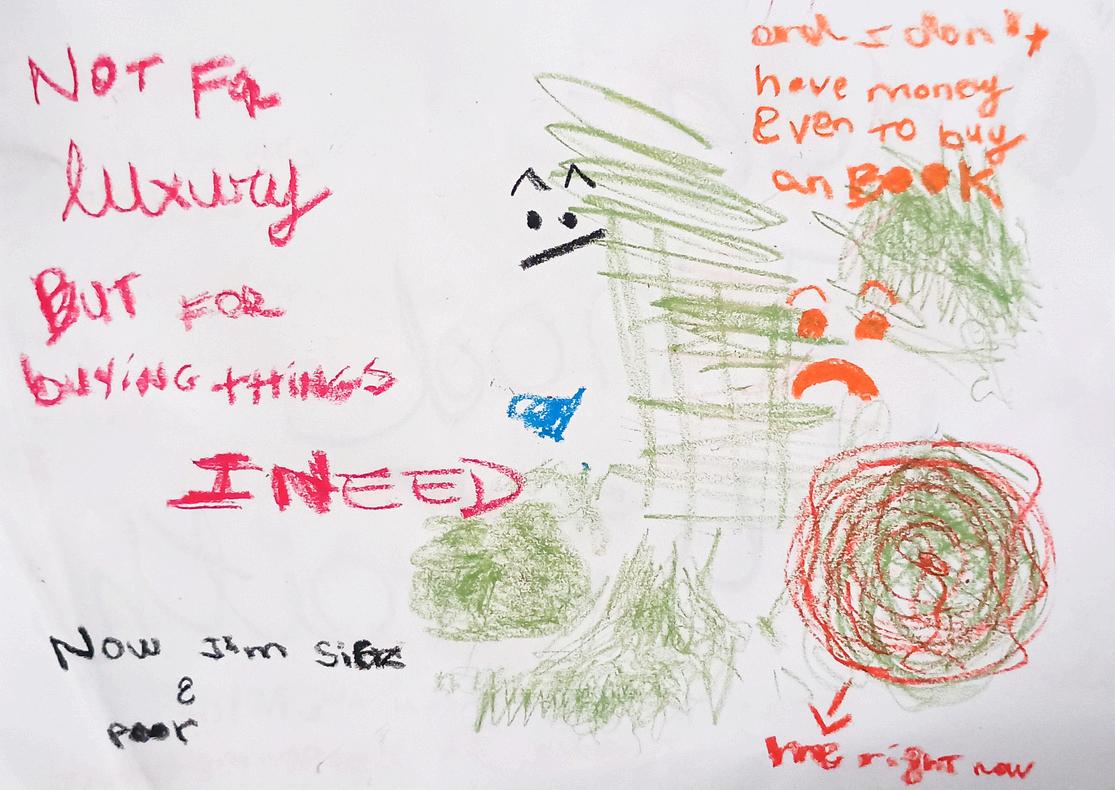 NOT FOR
luxury
BUT FOR
buyiNG tHINGS
I NEED
Now I'm SiCK
&
poor
and I don't
have money
Even TO buy
an BOOK
me right now